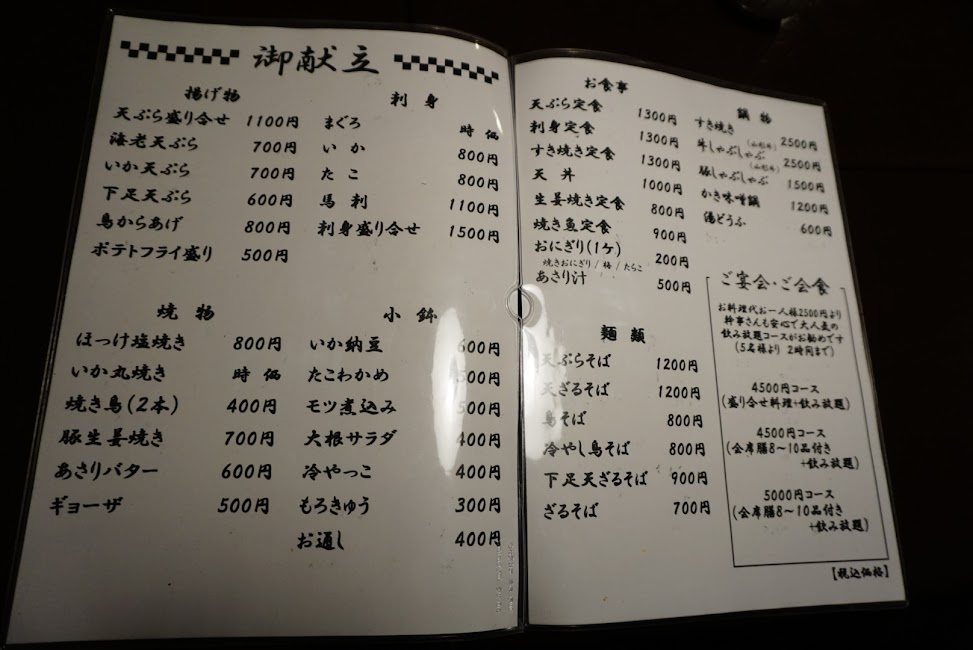 御献立
揚げ物
天ぷら盛り合せ 1100円
海老天ぷら 700円
いか天ぷら 700円
下足天ぷら 600円
鳥からあげ 800円
ポテトフライ盛り 500円
刺身
まぐろ 時価
いか 800円
たこ 800円
馬刺 1100円
刺身盛り合せ 1500円
焼物
ほっけ塩焼き 800円
いか丸焼き 時価
焼き鳥(2本) 400円
豚生姜焼き 700円
あさりバター 600円
ギョーザ 500円
小鉢
いか納豆 600円
たこわかめ 500円
モツ煮込み 500円
大根サラダ 400円
冷やっこ 400円
もろきゅう 300円
お通し 400円
お食事
天ぷら定食 1300円
刺身定食 1300円
すき焼き定食 1300円
天丼 1000円
生姜焼き定食 800円
焼き魚定食 900円
おにぎり(1ケ) 200円
焼きおにぎり / 梅 / たらこ
あさり汁 500円
麺類
天ぷらそば 1200円
天ざるそば 1200円
鳥そば 800円
冷やし鳥そば 800円
下足天ざるそば 900円
ざるそば 700円
鍋物
すき焼き 2500円
牛しゃぶしゃぶ 2500円
豚しゃぶしゃぶ 1500円
かき味噌鍋 1200円
湯どうふ 600円
ご宴会・ご会食
お料理代お一人様2500円より
幹事さんも安心で大人気の
飲み放題コースがお勧めです
(5名様より 2時間まで)
4500円コース
(盛り合せ料理+飲み放題)
4500円コース
(会席膳8〜10品付き
+飲み放題)
5000円コース
(会席膳8〜10品付き
+飲み放題)
【税込価格】